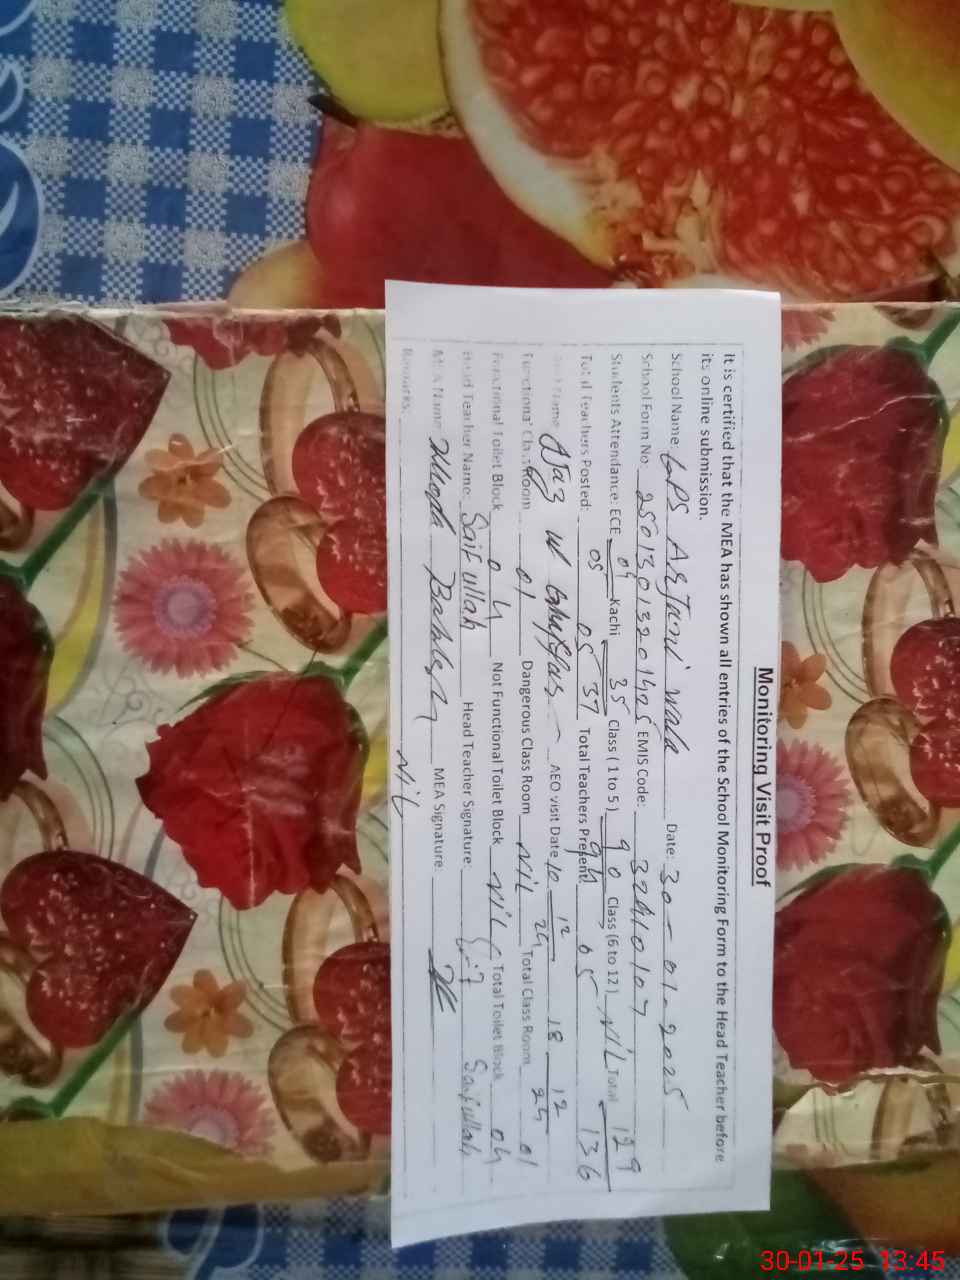 Monitoring Visit Proof
It is certified that the MEA has shown all entries of the School Monitoring Form to the Head Teacher before
its online submission.
School Name: GPS Arjani wala Date: 30-01-2025
School Form No: 25013013201425 EMIS Code: 32410107
Students Attendance: ECE 04/05 Kachi 35/37 Class (1 to 5) 90/94 Class (6 to 12) NIL Total 129/136
Total Teachers Posted: 05 Total Teachers Present: 05
Name AEO visit Date 10 12 24 18 12 24
Functional Class Room 01 Dangerous Class Room NIL Total Class Room 01
Functional Toilet Block 04 Not Functional Toilet Block NIL Total Toilet Block 04
Head Teacher Name: Saif ullah Head Teacher Signature: Saifullah
MEA Name: MEA Signature:
Remarks: NIL
30-01-25 13:45